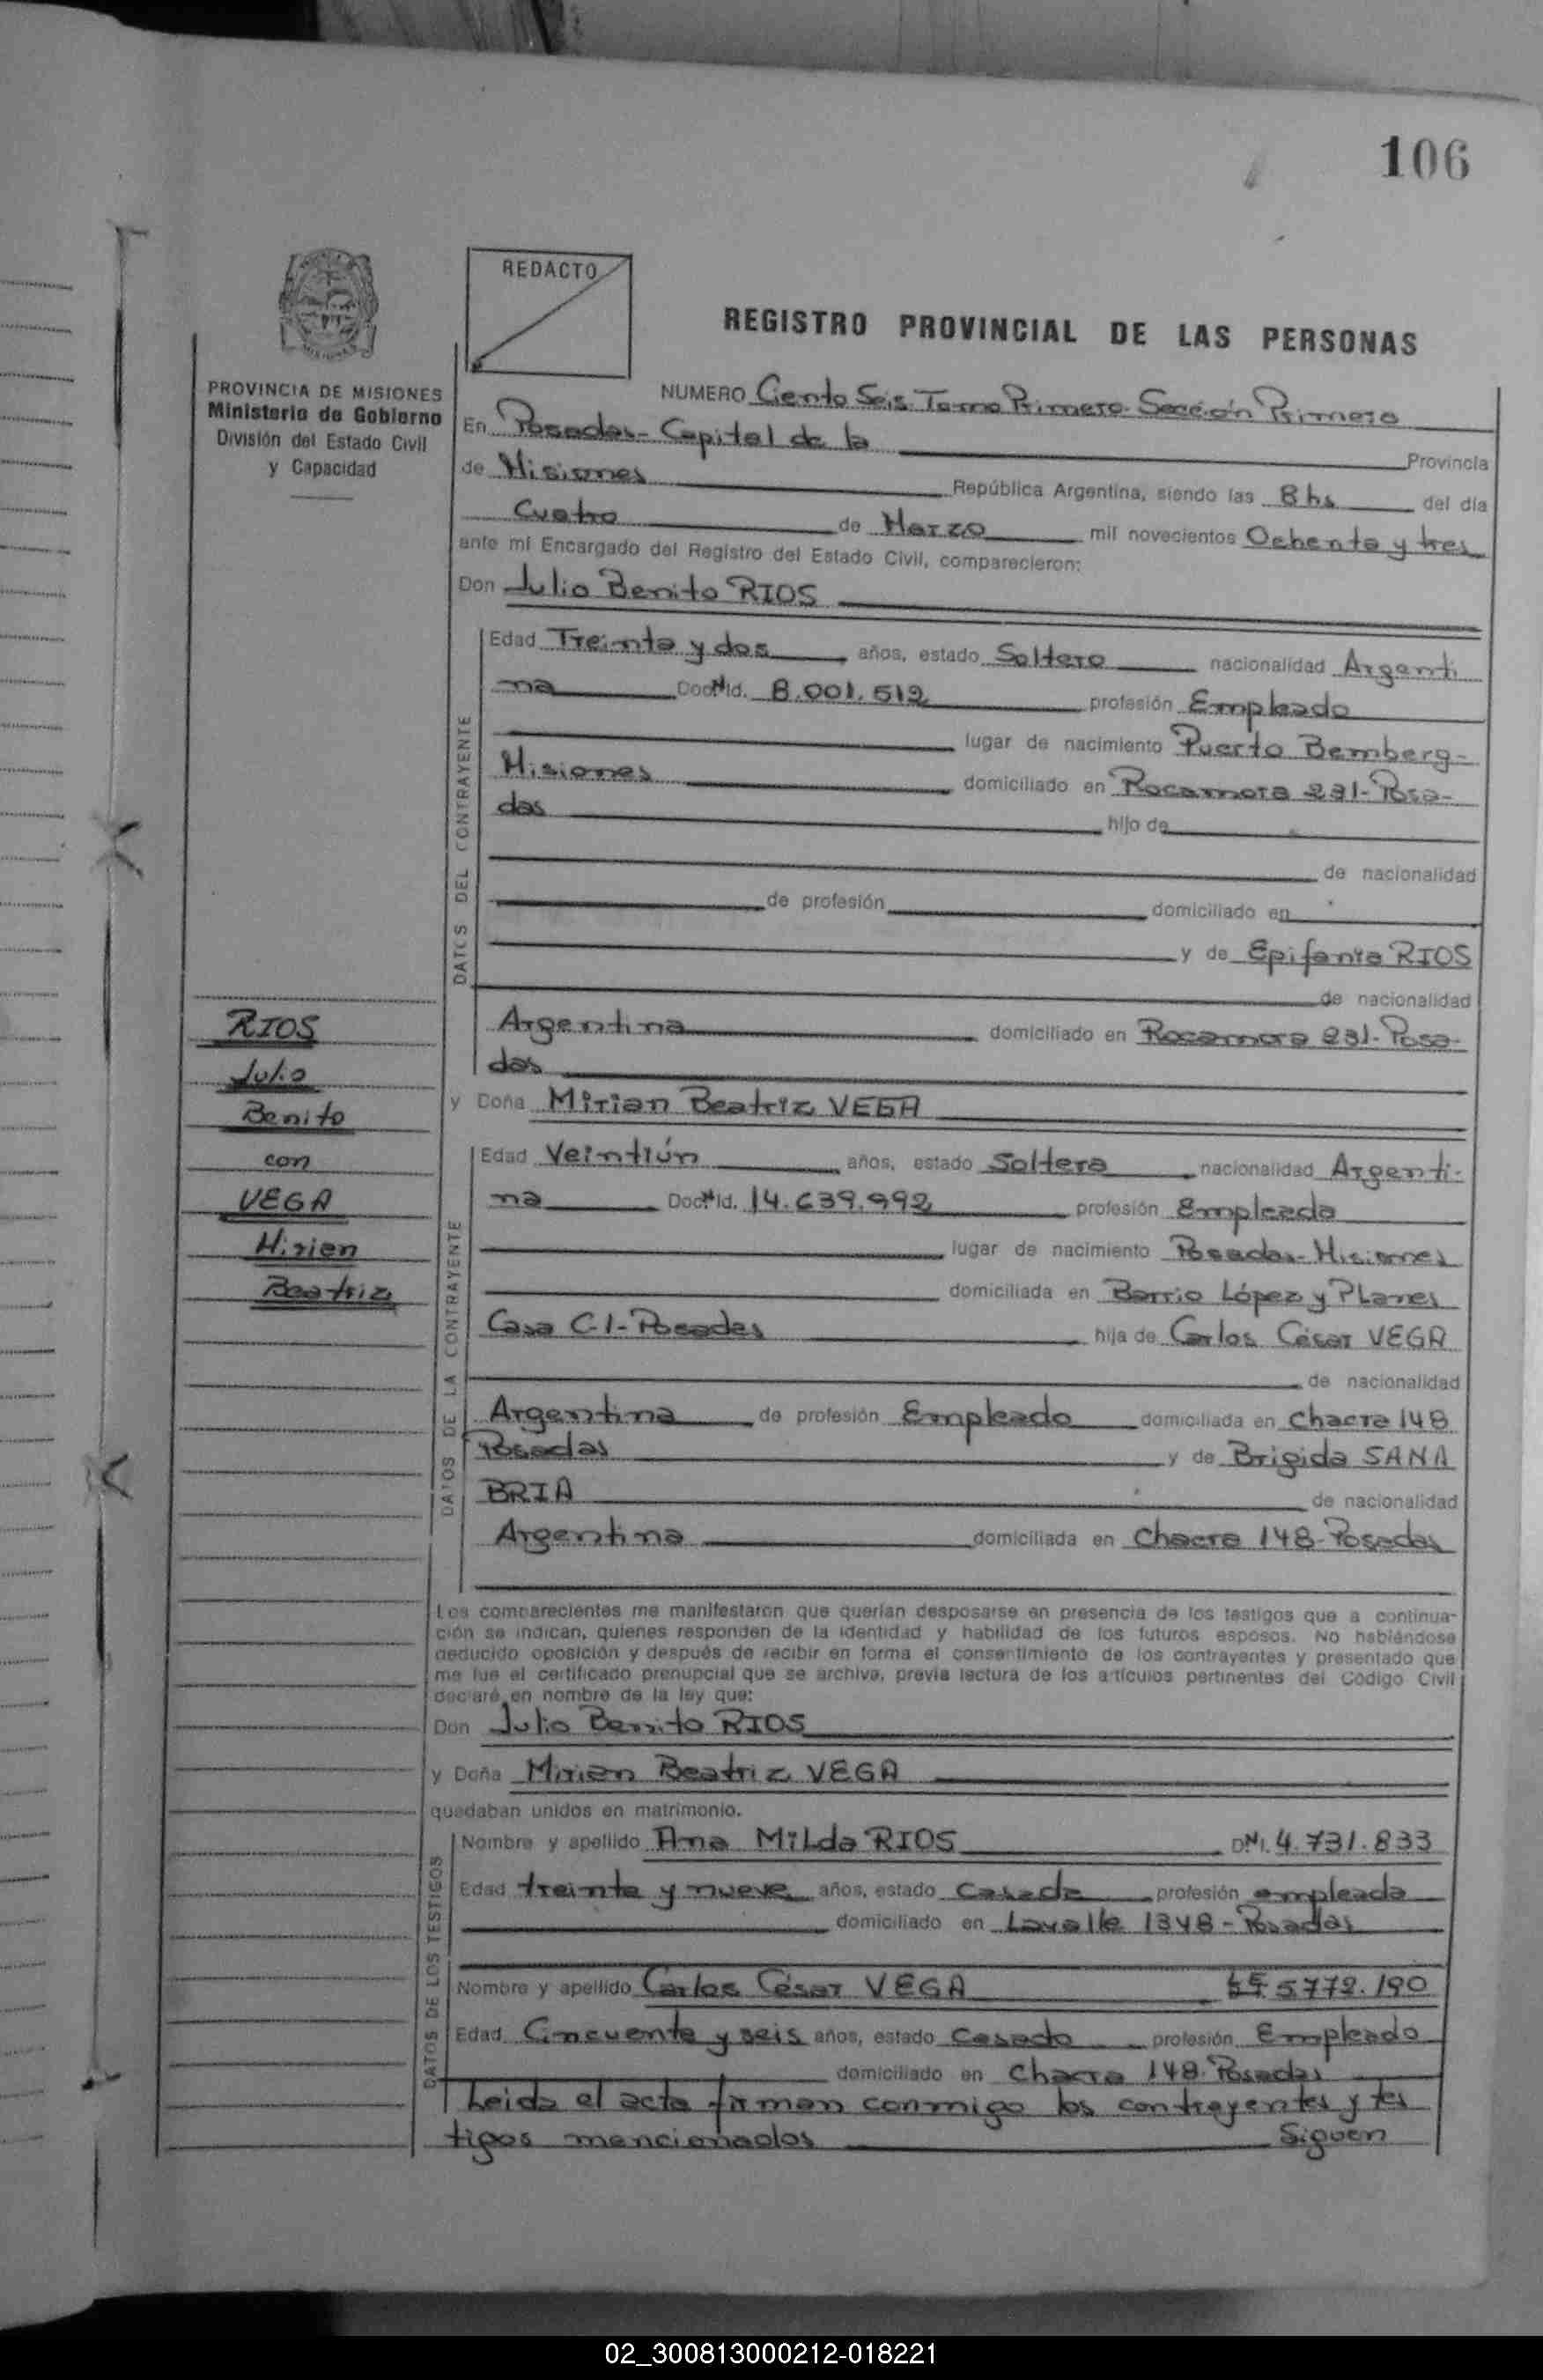 106
REDACTO
REGISTRO PROVINCIAL DE LAS PERSONAS
PROVINCIA DE MISIONES
Ministerio de Gobierno
División del Estado Civil
y Capacidad
NUMERO Ciento Seis Tomo Primero Sección Primera
En Posadas - Capital de la Provincia
de Misiones República Argentina, siendo las 8 hs del día
Cuatro de Marzo mil novecientos Ochenta y tres
ante mi Encargado del Registro del Estado Civil, comparecieron:
Don Julio Benito RIOS
DATOS DEL CONTRAYENTE
Edad Treinta y dos años, estado Soltero nacionalidad Argenti
na Doc. Id. 8.001.512 profesión Empleado
lugar de nacimiento Puerto Bemberg-
Misiones domiciliado en Rocamora 231- Posa-
das hijo de
de nacionalidad
de profesión domiciliado en
y de Epifania RIOS
de nacionalidad
Argentina domiciliado en Rocamora 231- Posa-
das
RIOS
Julio
Benito
con
VEGA
Mirien
Beatriz
y Doña Mirian Beatriz VEGA
DATOS DE LA CONTRAYENTE
Edad Veintiún años, estado Soltera nacionalidad Argenti-
na Doc. Id. 14.639.992 profesión Empleada
lugar de nacimiento Posadas- Misiones
domiciliada en Barrio López y PLanes
Casa C-1- Posadas hija de Carlos César VEGA
de nacionalidad
Argentina de profesión Empleado domiciliada en Chacra 148
Posadas y de Brigida SANA
BRIA de nacionalidad
Argentina domiciliada en Chacra 148- Posadas
Los comparecientes me manifestaron que querían desposarse en presencia de los testigos que a continua-
ción se indican, quienes responden de la identidad y habilidad de los futuros esposos. No habiéndose
deducido oposición y después de recibir en forma el consentimiento de los contrayentes y presentado que
me fue el certificado prenupcial que se archiva, previa lectura de los artículos pertinentes del Código Civil
declaré en nombre de la ley que:
Don Julio Benito RIOS
y Doña Mirian Beatriz VEGA
quedaban unidos en matrimonio.
DATOS DE LOS TESTIGOS
Nombre y apellido Ana MiLda RIOS DNI. 4.731.833
Edad treinta y nueve años, estado Casada profesión empleada
domiciliado en Lavalle 1348 - Posadas
Nombre y apellido Carlos César VEGA LE 5772.190
Edad Cincuenta y seis años, estado Casado profesión Empleado
domiciliado en Chacra 148- Posadas
Leida el acta firman conmigo los contrayentes y tes
tigos mencionados Siguen
02_300813000212-018221